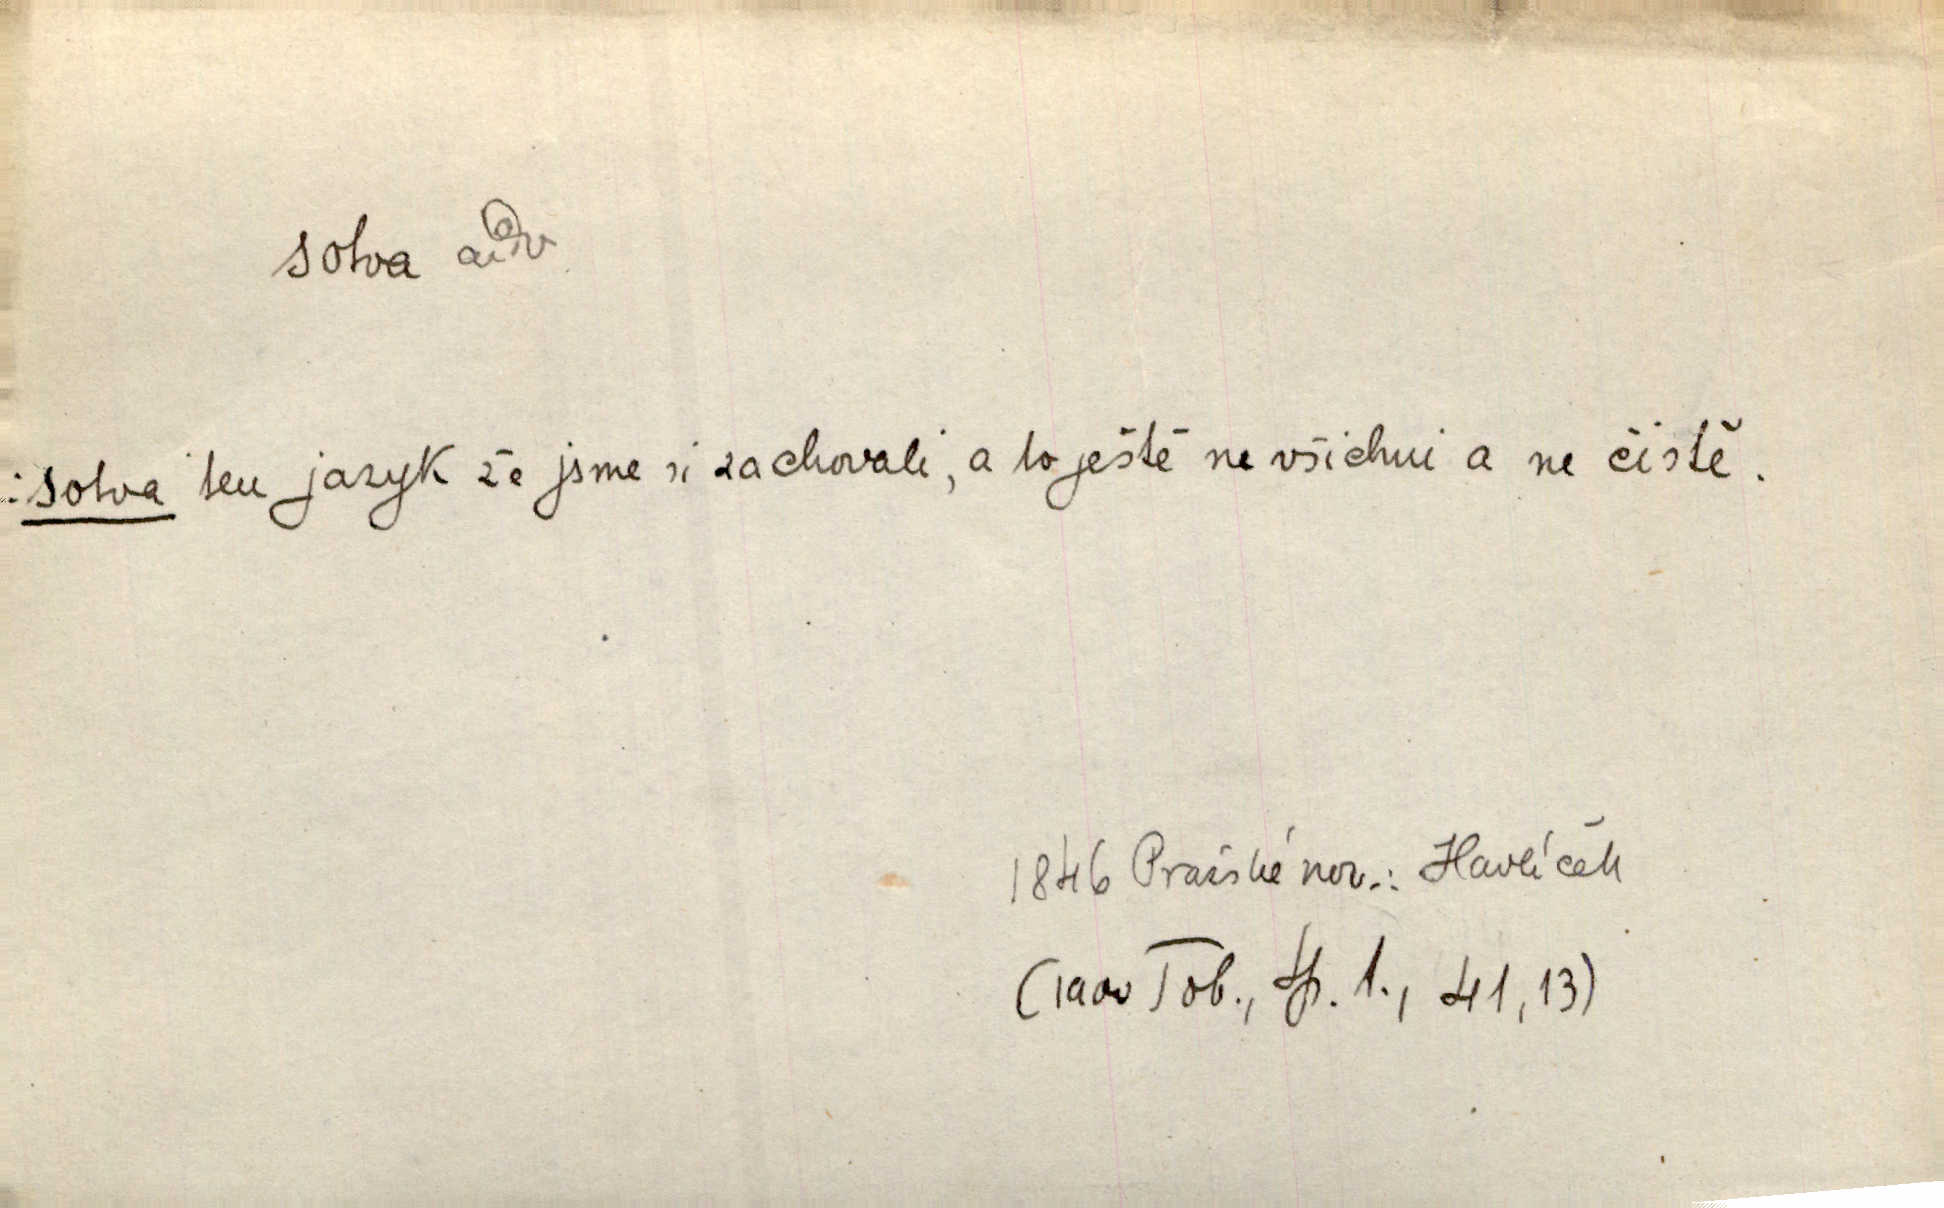 sotva adv
: sotva ten jazyk že jsme si zachovali, a to ještě ne všichni a ne čistě.
1846 Pražské nov.: Havlíček
(1900 Tob., sp. 1., 41, 13)